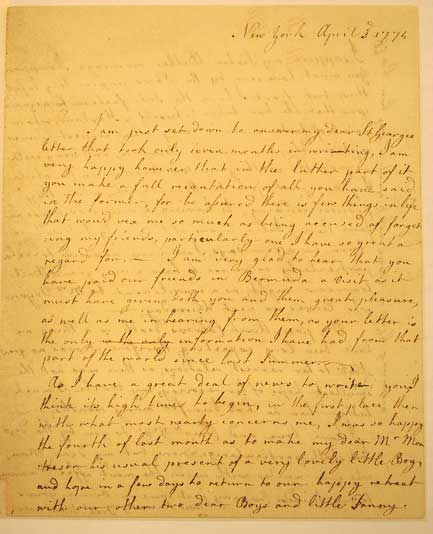 New York April 3d 1774
I am just set down to answer my dear St Georges
letter, that took only seven months in writing, I am
very happy however that in the latter part of it
you make a full recantation of all you have said
in the former, for be assured there is few things in life
that would vex me so much as being accused of forget
ing my friends, particularly one I have so great a
regard for. — I am very glad to hear that you
have paid our friends in Bermuda a visit as it
must have given both you and them great pleasure,
as well as me in hearing from them, as your letter is
the only is the only information I have had from that
part of the world since last Summer.
As I have a great deal of news to write you I
think its high time to begin, in the first place then
with what most nearly concerns me, I was so happy
the fourth of last month as to make my dear Mr Mon
tresor his usual present of a very lovely little Boy,
and hope in a few days to return to our happy retreat
with our other two dear Boys and little Fanny.